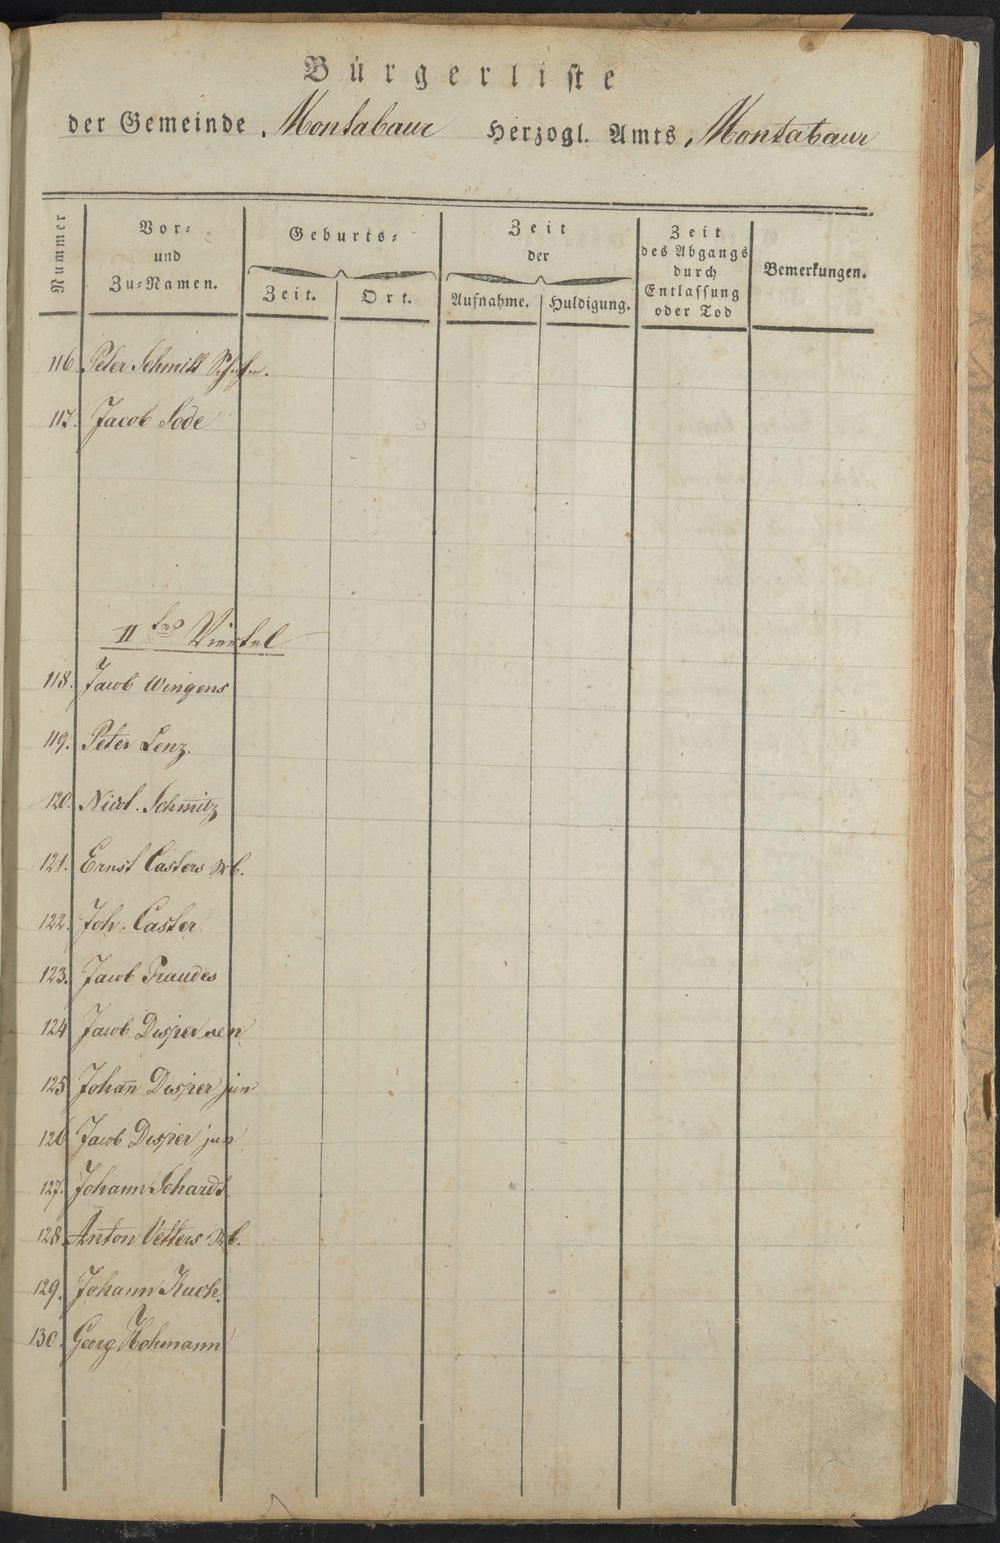 Bürgerliste
der Gemeinde Montabaur Herzogl. Amts Montabaur
Nummer
Vor- und Zu-Namen.
Geburts-
Zeit. Ort.
Zeit der
Aufnahme. Huldigung.
Zeit des Abgangs durch Entlassung oder Tod
Bemerkungen.
116. Peter Schmitt
117. Jacob Sode
II tes Viertel
118. Jacob Wingens
119. Peter Lenz.
120. Nicol. Schmitz
121. Ernst Casters Wb.
122. Joh. Caster
123. Jacob
124 Jacob Disper sen
125 Johan̄ Disper jun
126 Jacob Disper jun
127. Johann Schardt
128 Anton Vetters Wb.
129. Johann
130. Georg Hohmann